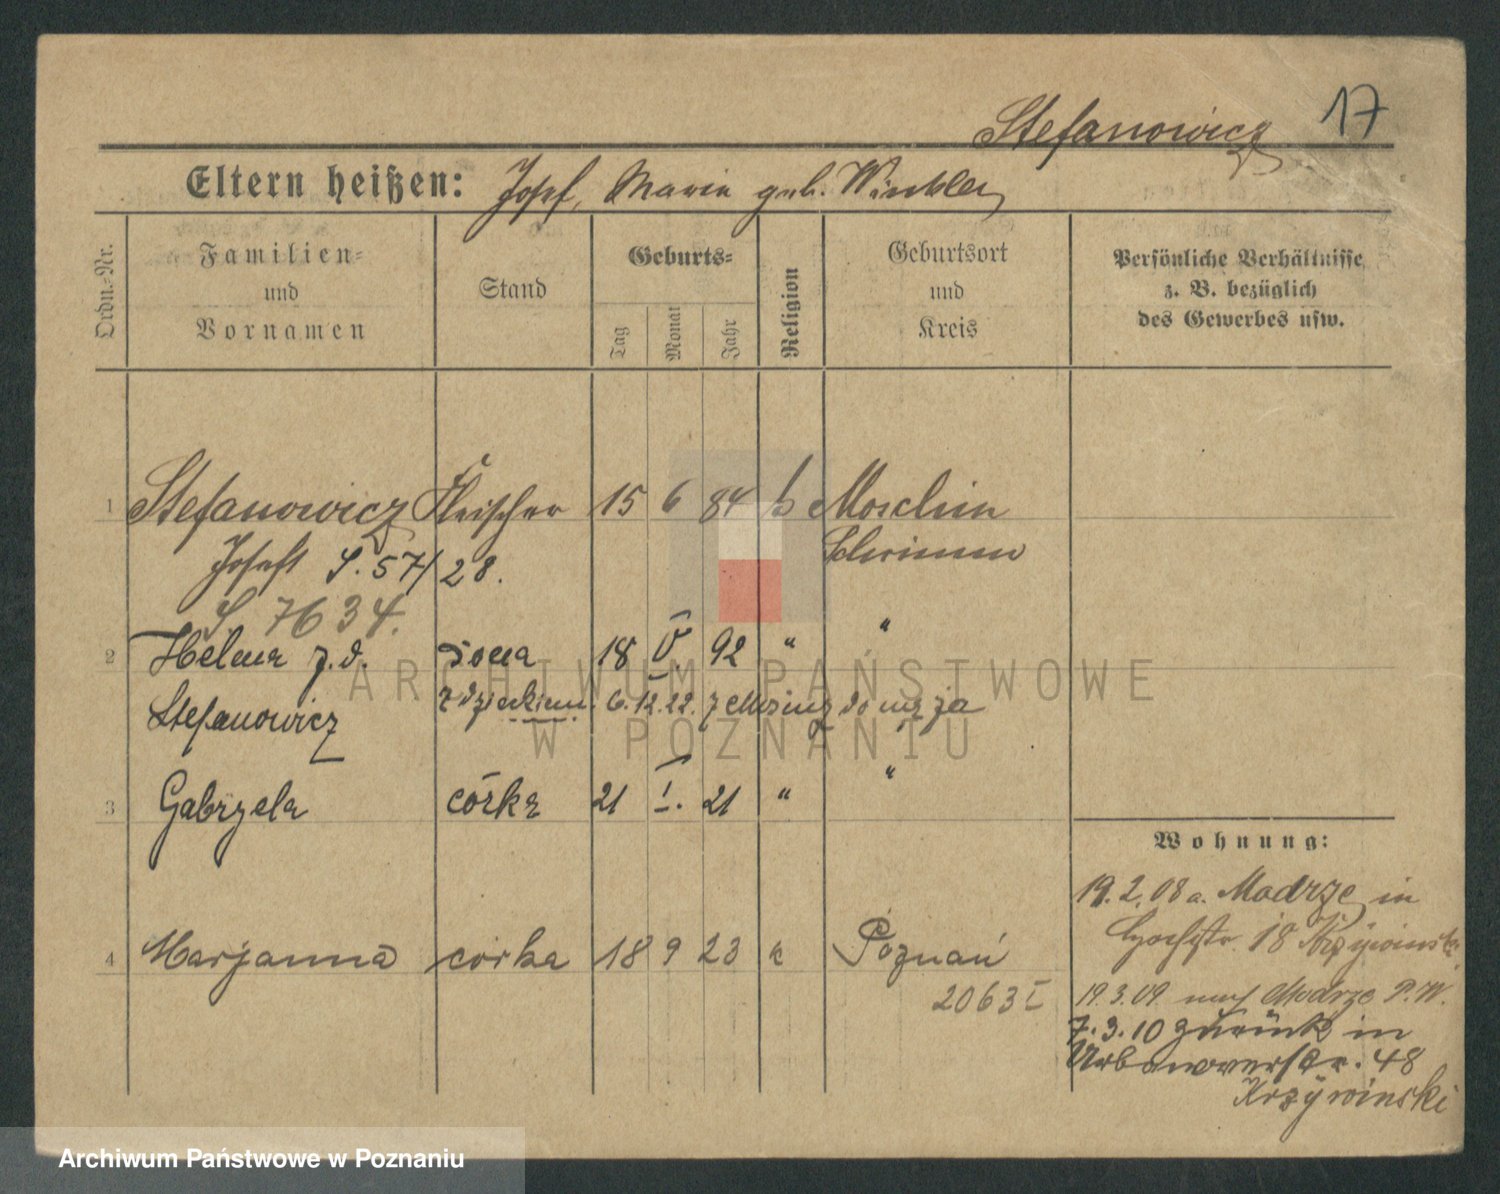 17
Stefanowicz
Eltern heißen: Josef, Maria geb. Winkler
Ordn.-Nr.
Familien- und Vornamen
Stand
Geburts-
Tag
Monat
Jahr
Religion
Geburtsort und Kreis
Persönliche Verhältnisse z. B. bezüglich des Gewerbes usw.
1 Stefanowicz Fleischer 15 6 84 k Moschin
Josef S. 57/28. Schrimm
S 7634.
2 Helena z.d. żona 18 V. 92 " "
Stefanowicz z dzieckiem 6.12.22. z do męża
3 Gabryela córka 21 I. 21 " "
4 Marjanna córka 18 9 23 k Poznań
2063 I
Wohnung:
19.2.08 a. Modrze in
18 Krzywinski
19.3.09 nach Modrze P.W.
7.3.10 zurück in
Urbanowerstr. 48
Krzywinski
ARCHIWUM PAŃSTWOWE
W POZNANIU
Archiwum Państwowe w Poznaniu